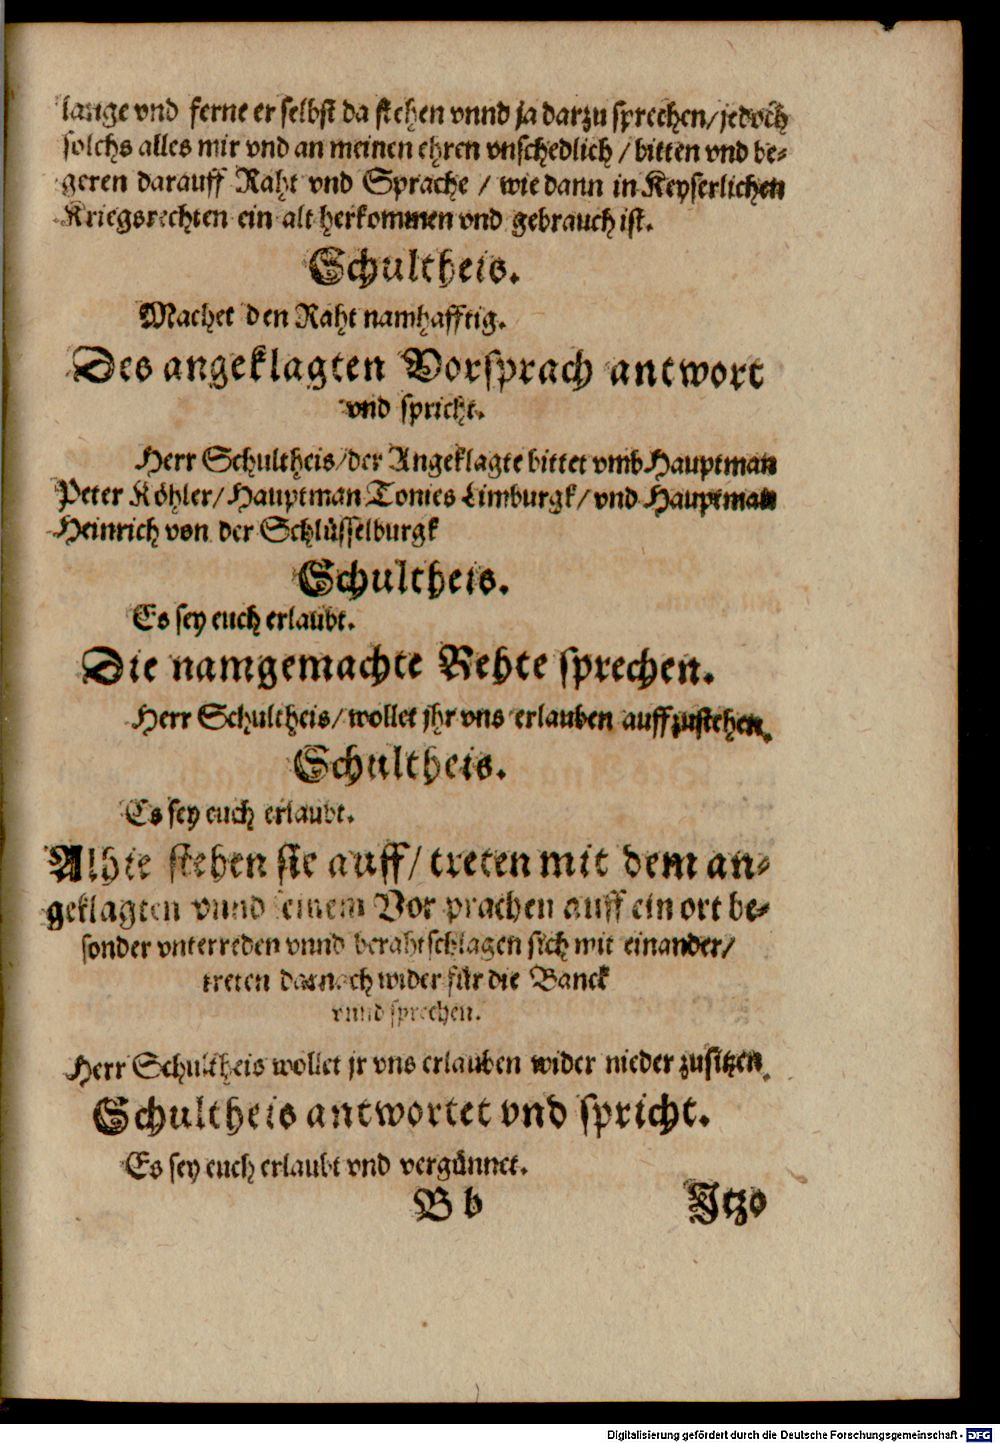 lange vnd ferne er selbst da stehen vnnd ja darzu sprechen/jedoch
solchs alles mir vnd an meinen ehren vnschedlich / bitten vnd be-
geren darauff Raht vnd Sprache / wie dann in Keyserlichen
Kriegsrechten ein alt herkommen vnd gebrauch ist.
Schultheis.
Machet den Raht namhafftig.
Des angeklagten Vorsprach antwort
vnd spricht.
Herr Schultheis/der Angeklagte bittet vmb Hauptman
Peter Köhler/Hauptman Tonies Limburgk/vnd Hauptman
Heinrich von der Schlüsselburgk
Schultheis.
Es sey euch erlaubt.
Die namgemachte Rehte sprechen.
Herr Schultheis/wollet jhr vns erlauben auffzustehen.
Schultheis.
Es sey euch erlaubt.
Alhie stehen sie auff/treten mit dem an-
geklagten vnnd seinem Vorsprachen auff ein ort be-
sonder vnterreden vnnd berahtschlagen sich mit einander/
treten darnach wider für die Banck
vnnd sprechen.
Herr Schultheis wollet jr vns erlauben wider nieder zusitzen.
Schultheis antwortet vnd spricht.
Es sey euch erlaubt vnd vergünnet.
B b Jtzo
Digitalisierung gefördert durch die Deutsche Forschungsgemeinschaft - DFG